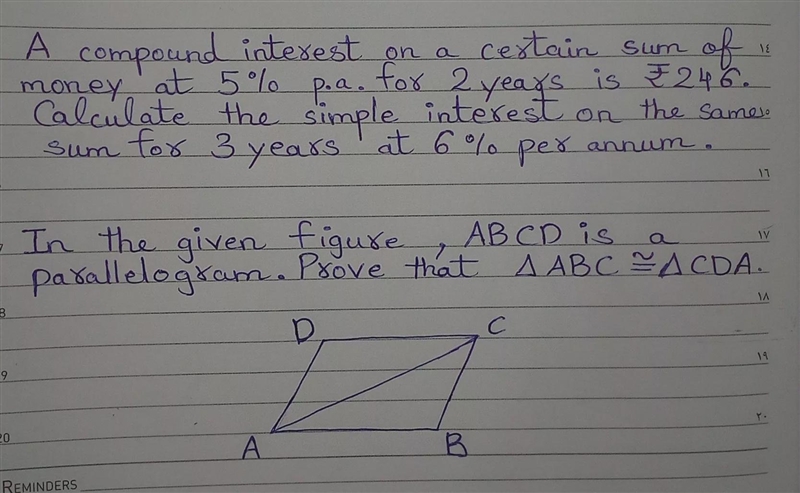 A compound interest on a certain sum of ١٤
money at 5% p.a. for 2 years is ₹246.
Calculate the simple interest on the same
sum for 3 years at 6% per annum.
١٦
In the given figure, ABCD is a ١٧
parallelogram. Prove that Δ ABC ≅ Δ CDA.
8 ١٨
D C
9 ١٩
20 ٢٠
A B
REMINDERS